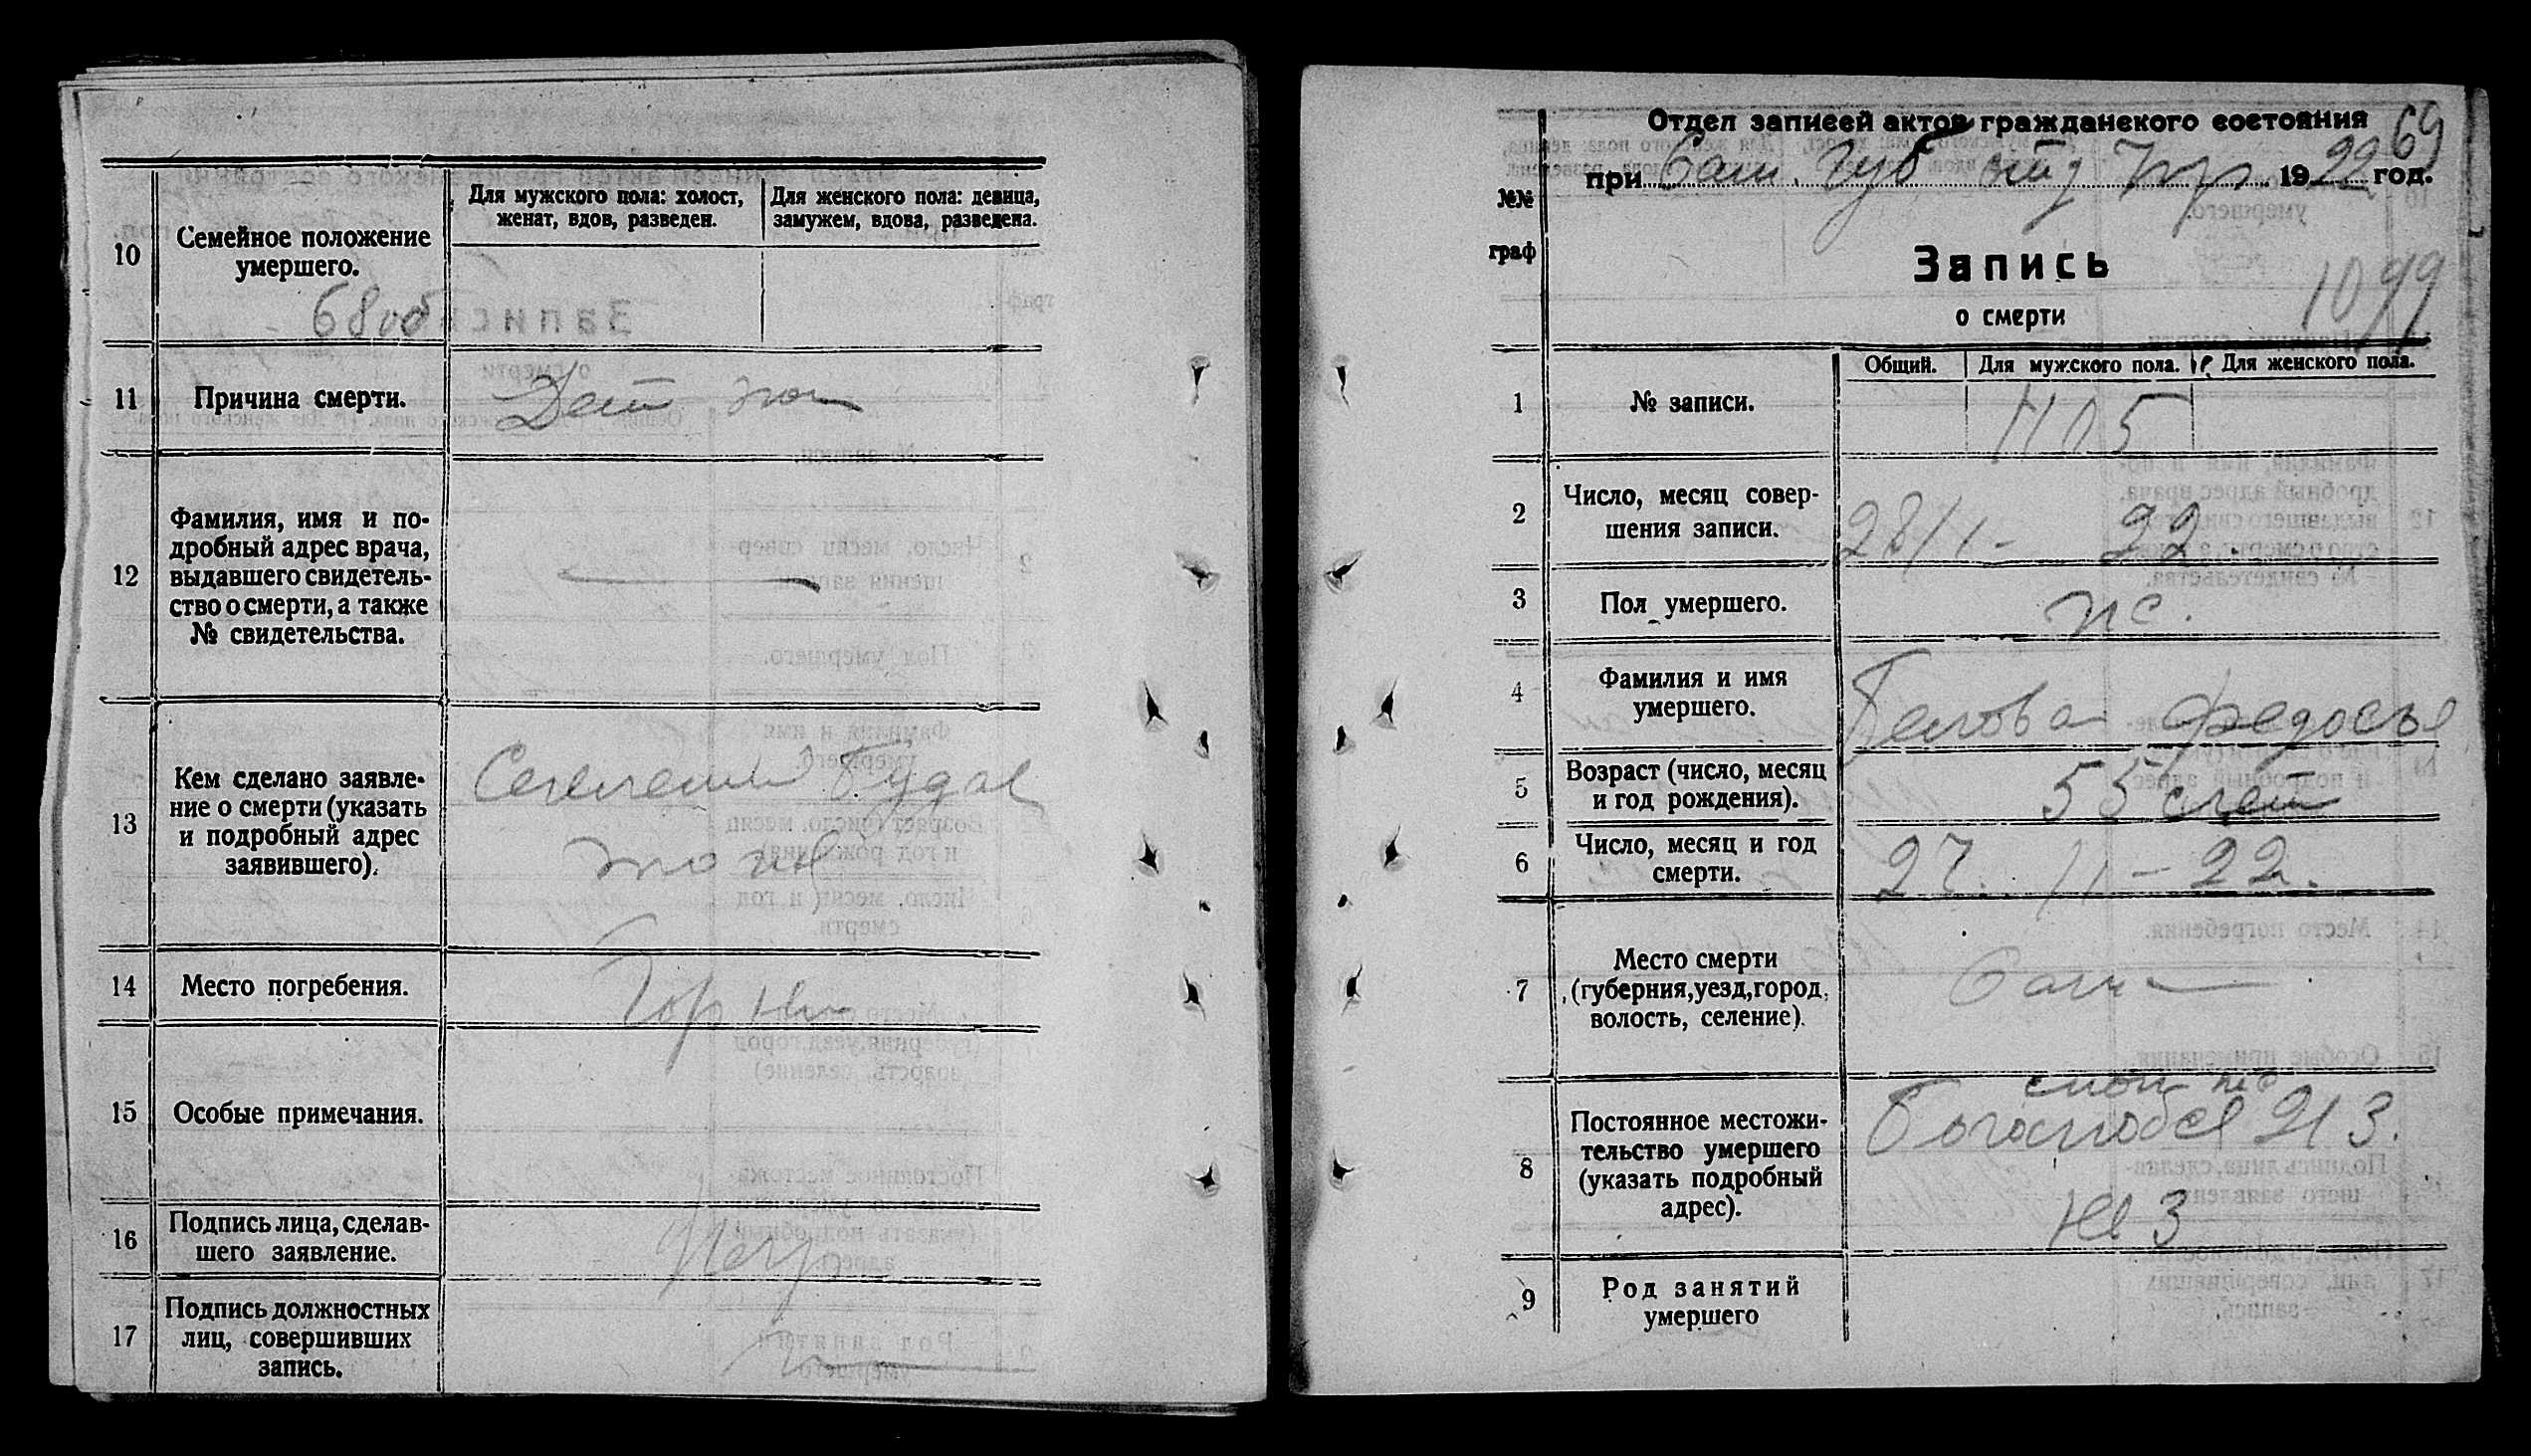 10
Семейное положение
умершего.
Для мужского пола: холост,
женат, вдов, разведен.
Для женского пола: девица,
замужем, вдова, разведена.
68 об
11
Причина смерти.
12
Фамилия, имя и по-
дробный адрес врача,
выдавшего свидетель-
ство о смерти, а также
№ свидетельства.
13
Кем сделано заявле-
ние о смерти (указать
и подробный адрес
заявившего).
14
Место погребения.
15
Особые примечания.
16
Подпись лица, сделав-
шего заявление.
17
Подпись должностных
лиц, совершивших
запись.
69
Отдел записей актов гражданского состояния
при Сам. губ отд 1922 год.
№№
граф
Запись
о смерти
1099
Общий. Для мужского пола. Для женского пола.
1
№ записи.
1105
2
Число, месяц совер-
шения записи.
28/1 - 22.
3
Пол умершего.
ж.
4
Фамилия и имя
умершего.
Белова Федосья
5
Возраст (число, месяц
и год рождения).
55 лет
6
Число, месяц и год
смерти.
27. 11 - 22.
7
(губерния, уезд, город,
Место смерти
волость, селение).
Сам
8
Постоянное местожи-
тельство умершего
(указать подробный
адрес).
213.
№ 3
9
Род занятий
умершего